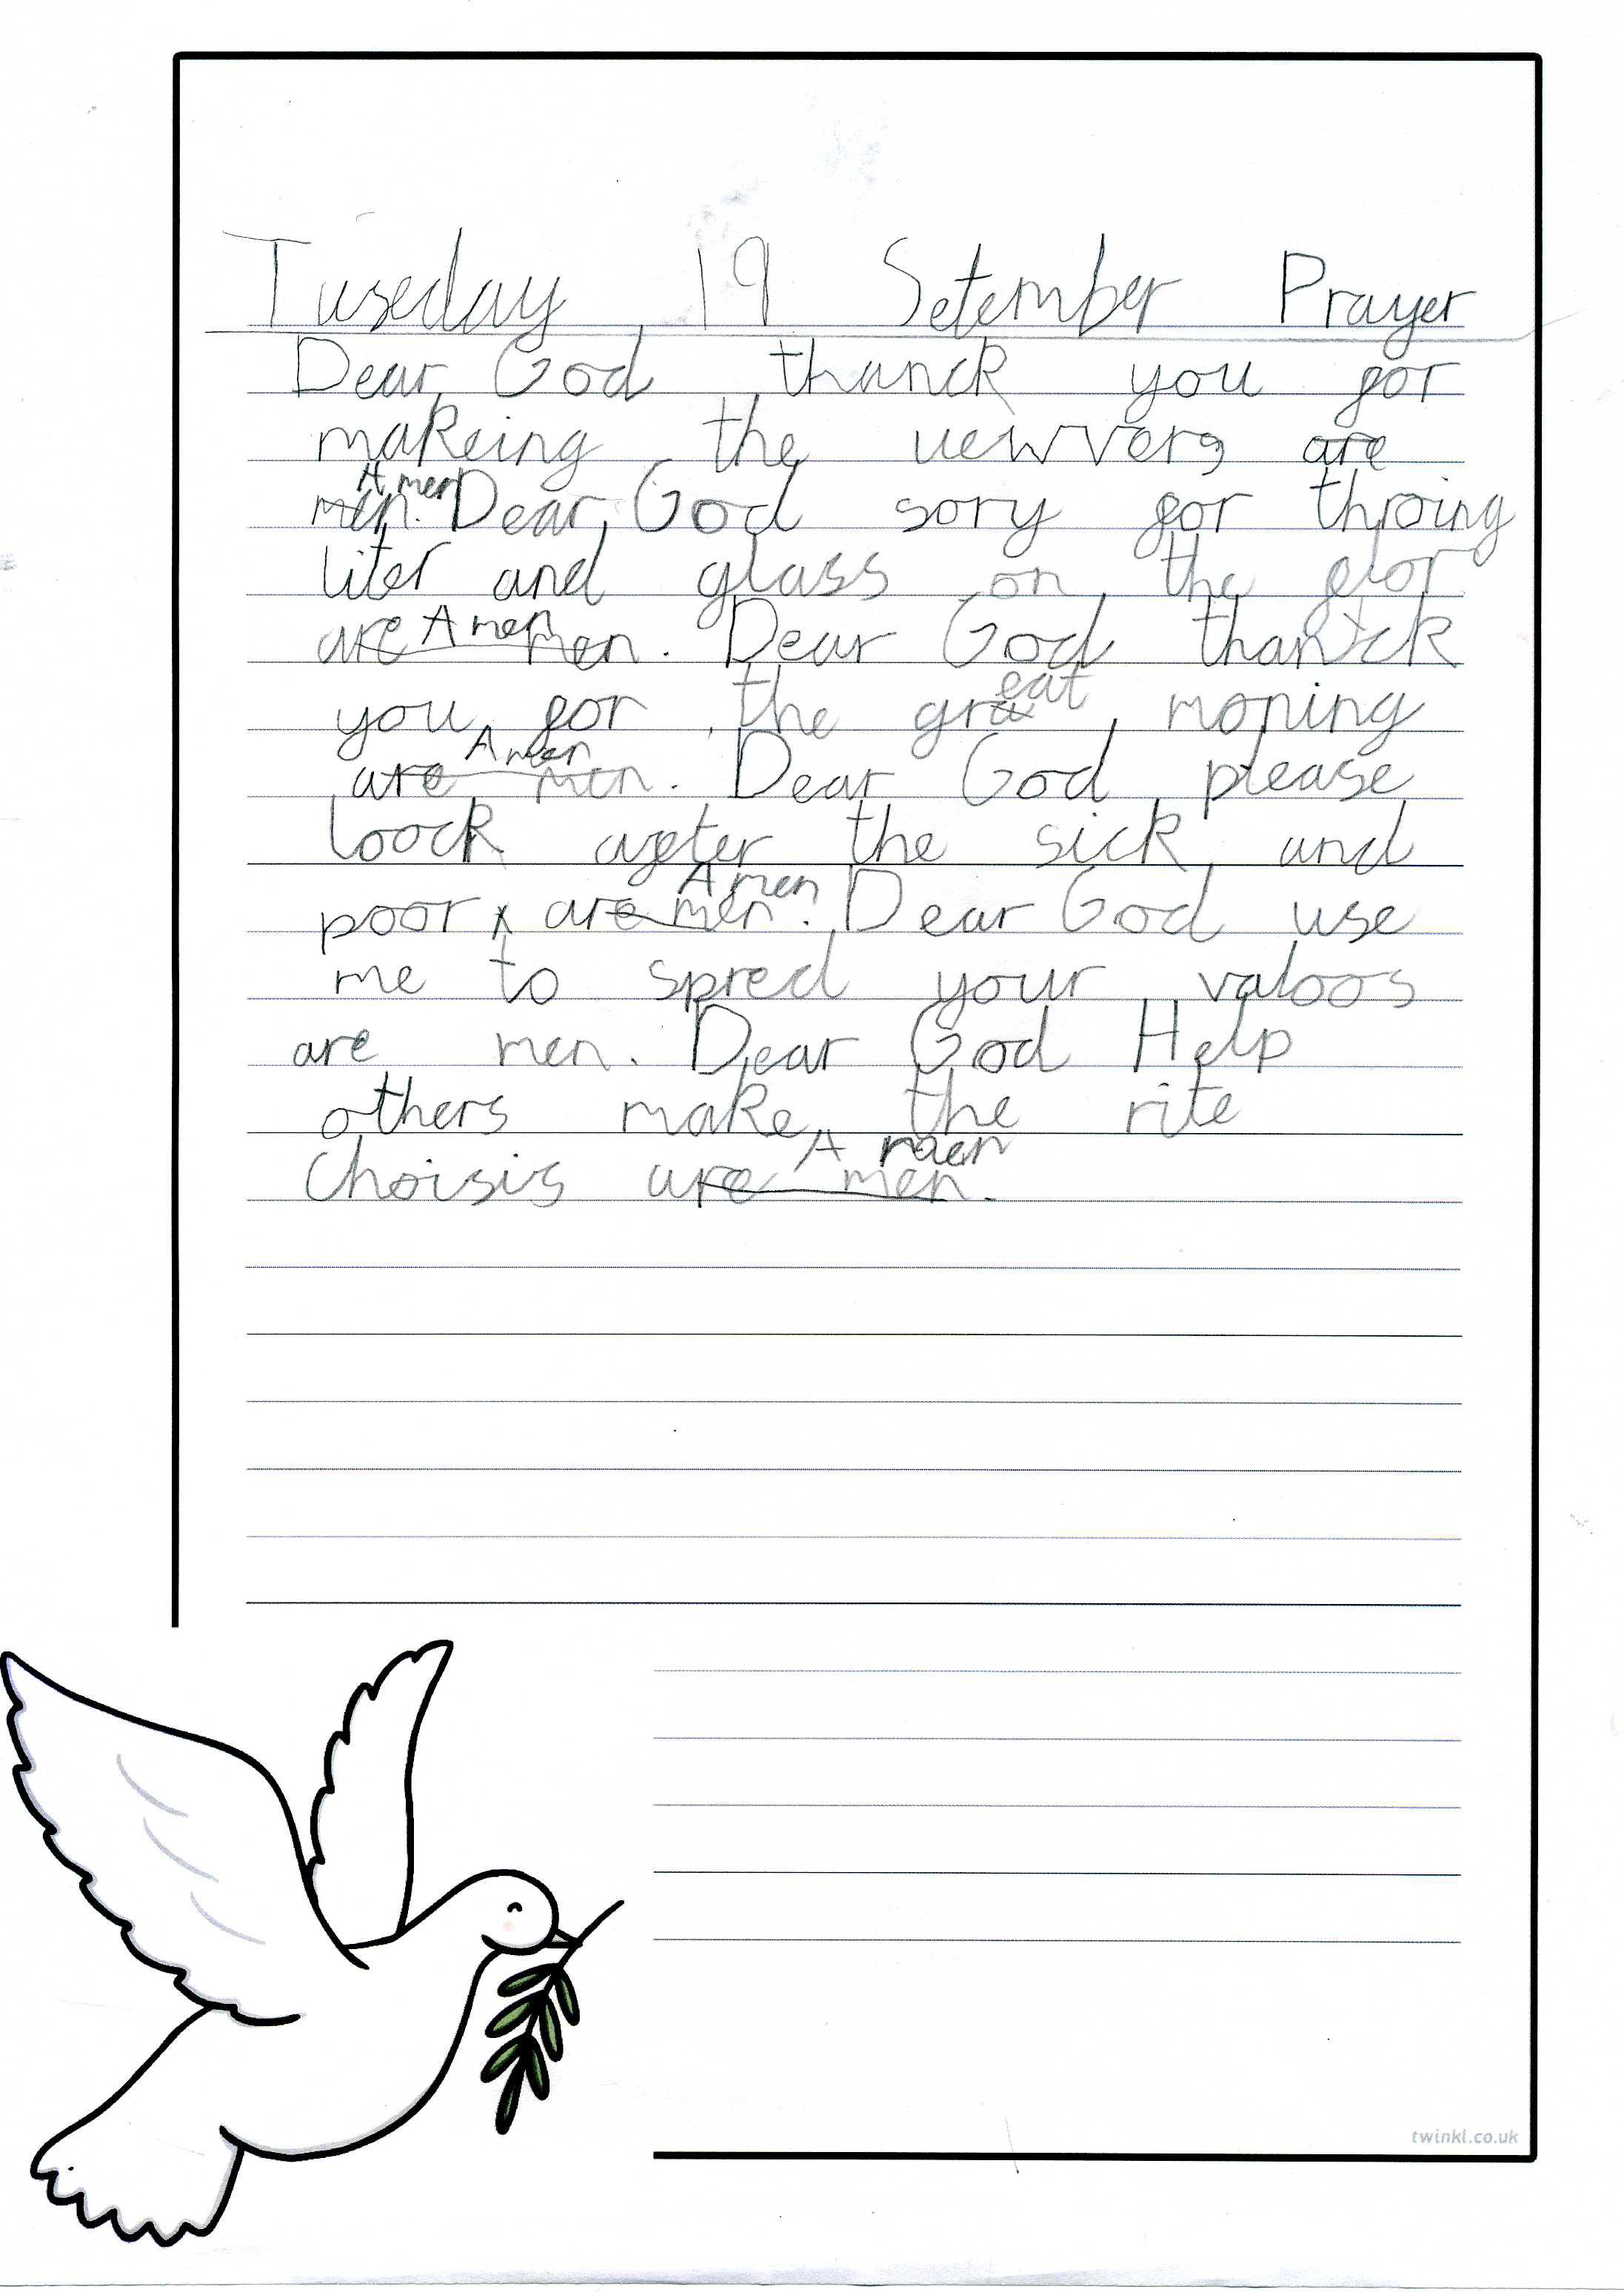 Tuseday 19 Setember Prayer
Dear God thanck you for
makeing the uewvers are
men. Amen Dear God sory for throing
liter and glass on the flor
are men. Amen Dear God thanck
you for the great moning
are men. Amen Dear God please
loock aggter the sick and
poor are men. Amen Dear God use
me to spred your valoos
are men. Dear God Help
others make the rite
choisis are men. Amen
twinkl.co.uk